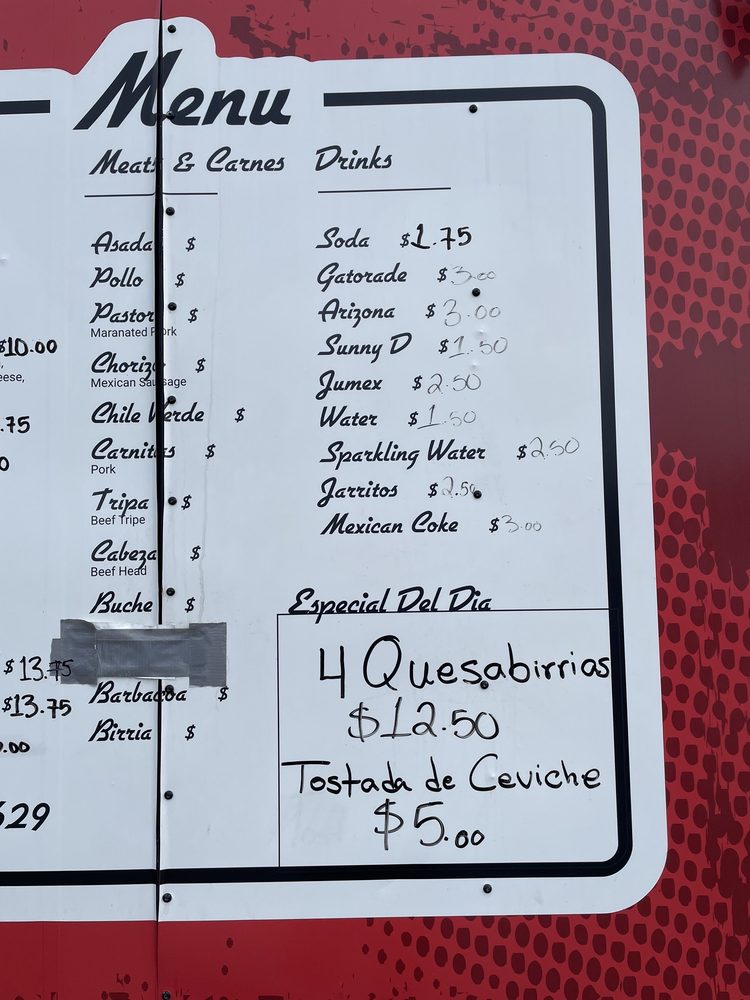 Menu
Meats & Carnes
Asada $
Pollo $
Pastor $
Maranated Pork
Chorizo $
Mexican Sausage
Chile Verde $
Carnitas $
Pork
Tripa $
Beef Tripe
Cabeza $
Beef Head
Buche $
Barbacoa $
Birria $
Drinks
Soda $1.75
Gatorade $3.00
Arizona $3.00
Sunny D $1.50
Jumex $2.50
Water $1.50
Sparkling Water $2.50
Jarritos $2.50
Mexican Coke $3.00
Especial Del Dia
4 Quesabirrias
$12.50
Tostada de Ceviche
$5.00
$10.00
eese,
.75
0
$13.75
$13.75
.00
629